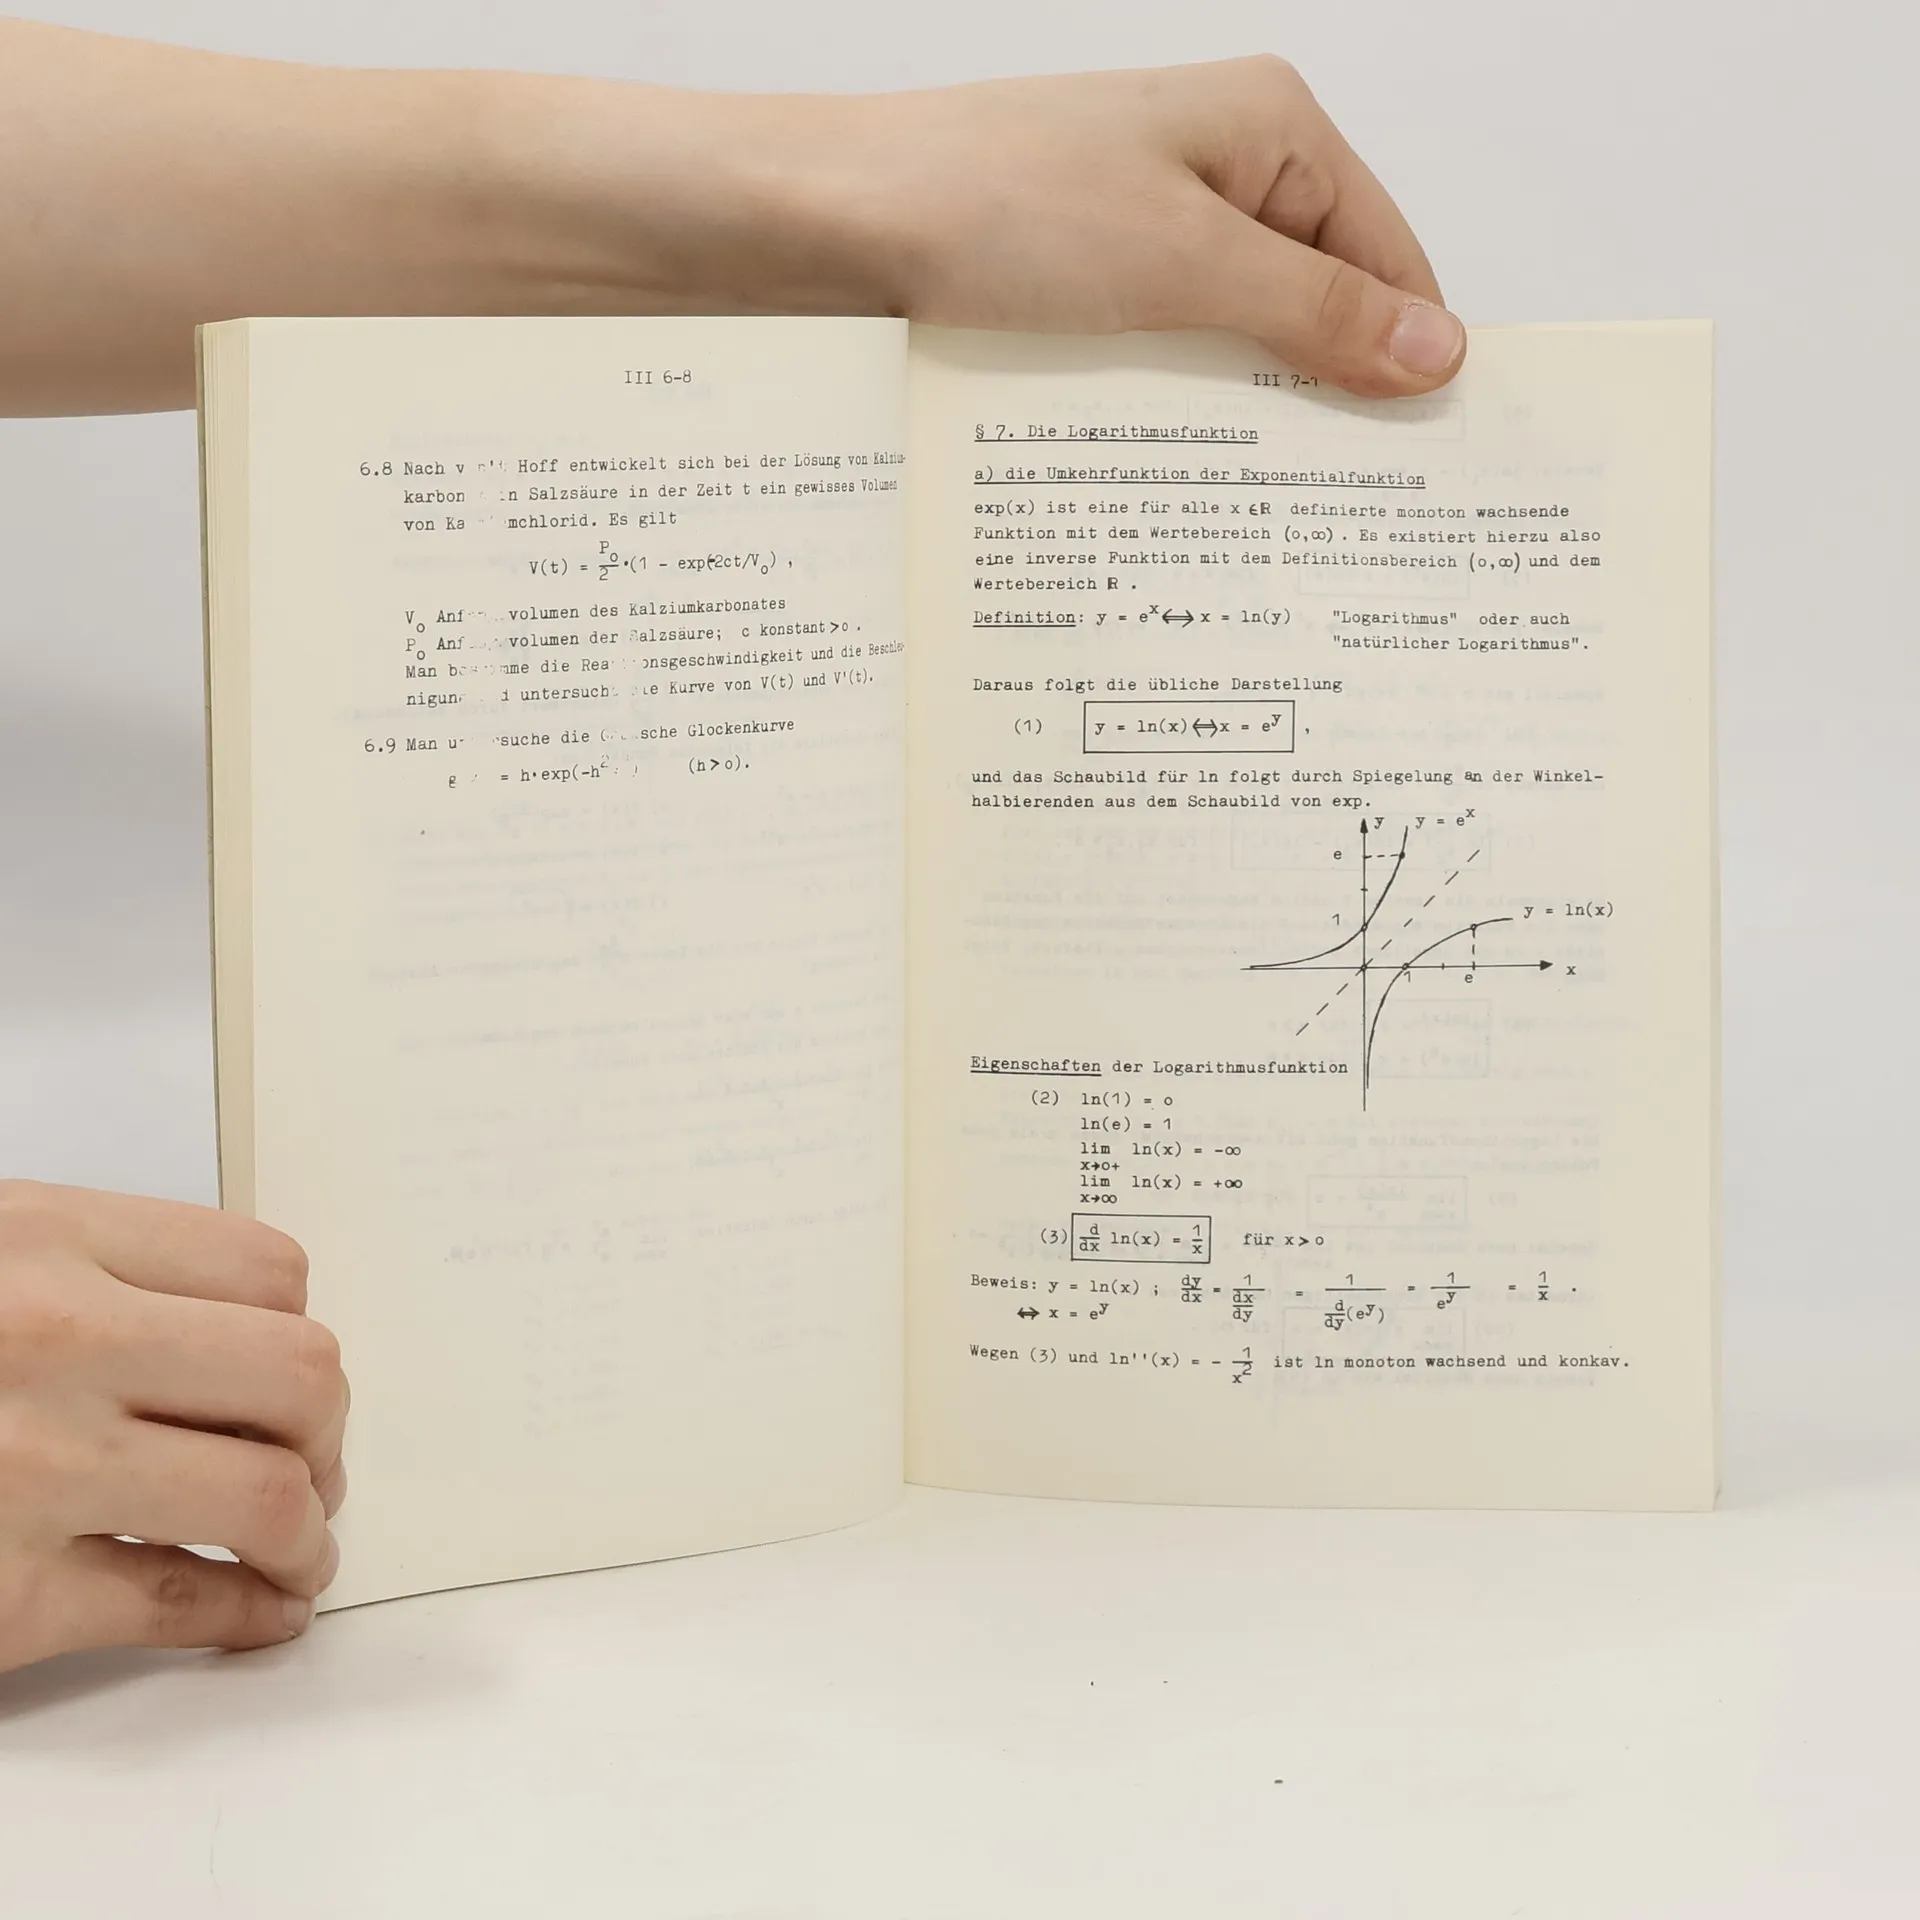 III 6-8
6.8 Nach Hoff entwickelt sich bei der Lösung von
in Salzsäure in der Zeit t ein gewisses Volumen
von Es gilt
V(t) = P₀/2 ·(1 - exp(-2ct/V₀) ,
V₀ volumen des Kalziumkarbonates
P₀ volumen der Salzsäure; c konstant >o .
Man die und die
untersuche Kurve von V(t) und V'(t).
6.9 Man die Glockenkurve
= h·exp(-h² (h>o).
III 7-1
§ 7. Die Logarithmusfunktion
a) die Umkehrfunktion der Exponentialfunktion
exp(x) ist eine für alle x ∈ℝ definierte monoton wachsende
Funktion mit dem Wertebereich (o,∞) . Es existiert hierzu also
eine inverse Funktion mit dem Definitionsbereich (o,∞) und dem
Wertebereich ℝ .
Definition: y = eˣ ⟺ x = ln(y) "Logarithmus" oder auch
"natürlicher Logarithmus".
Daraus folgt die übliche Darstellung
(1) y = ln(x) ⟺ x = eʸ ,
und das Schaubild für ln folgt durch Spiegelung an der Winkel-
halbierenden aus dem Schaubild von exp.
y y = eˣ
e
1 y = ln(x)
1 e x
Eigenschaften der Logarithmusfunktion
(2) ln(1) = o
ln(e) = 1
lim ln(x) = -∞
x→o+
lim ln(x) = +∞
x→∞
(3) d/dx ln(x) = 1/x für x>o
Beweis: y = ln(x) ; dy/dx = 1/(dx/dy) = 1/(d/dy(eʸ)) = 1/eʸ = 1/x .
⟺ x = eʸ
Wegen (3) und ln''(x) = - 1/x² ist ln monoton wachsend und konkav.